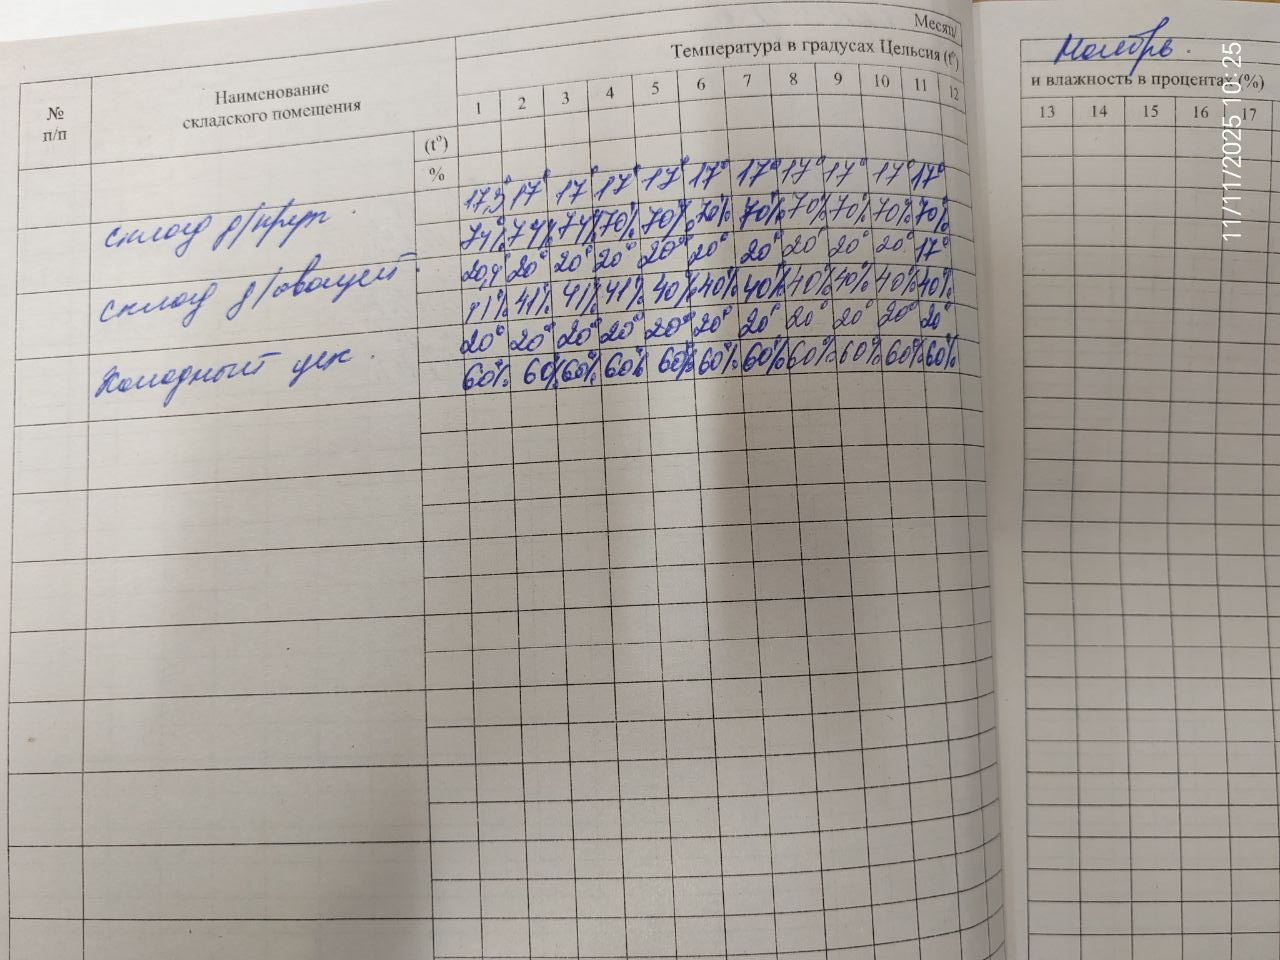 Месяц
Ноябрь
Температура в градусах Цельсия (t°)
и влажность в процентах (%)
№ п/п
Наименование складского помещения
1 2 3 4 5 6 7 8 9 10 11 12
13 14 15 16 17
(t°)
%
склад д/круп.
17,3° 17° 17° 17° 17° 17° 17° 17° 17° 17° 17°
74% 74% 74% 70% 70% 70% 70% 70% 70% 70% 70%
склад д/овощей.
20,4° 20° 20° 20° 20° 20° 20° 20° 20° 20° 17°
41% 41% 41% 40% 40% 40% 40% 40% 40% 40%
Холодный цех.
20° 20° 20° 20° 20° 20° 20° 20° 20° 20° 20°
60% 60% 60% 60% 60% 60% 60% 60% 60% 60% 60%
11/11/2025 10:25